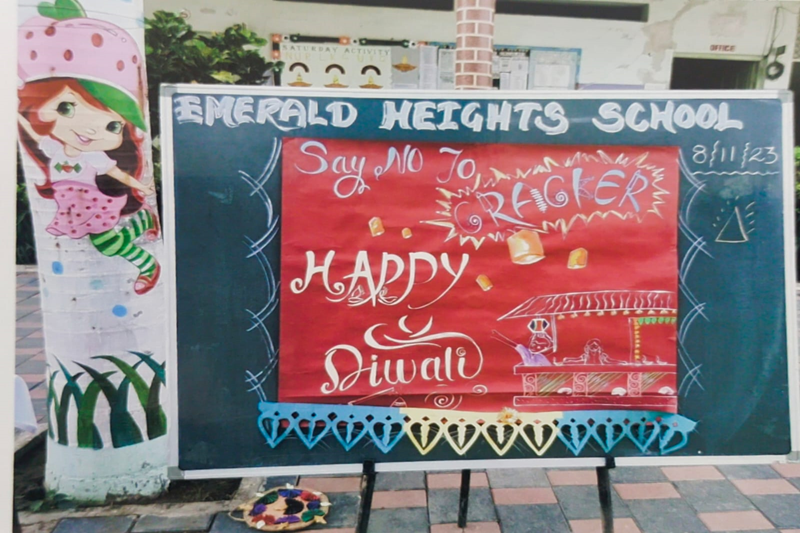 SATURDAY ACTIVITY
OFFICE
EMERALD HEIGHTS SCHOOL
8/11/23
Say NO To
CRACKER
HAPPY
Diwali